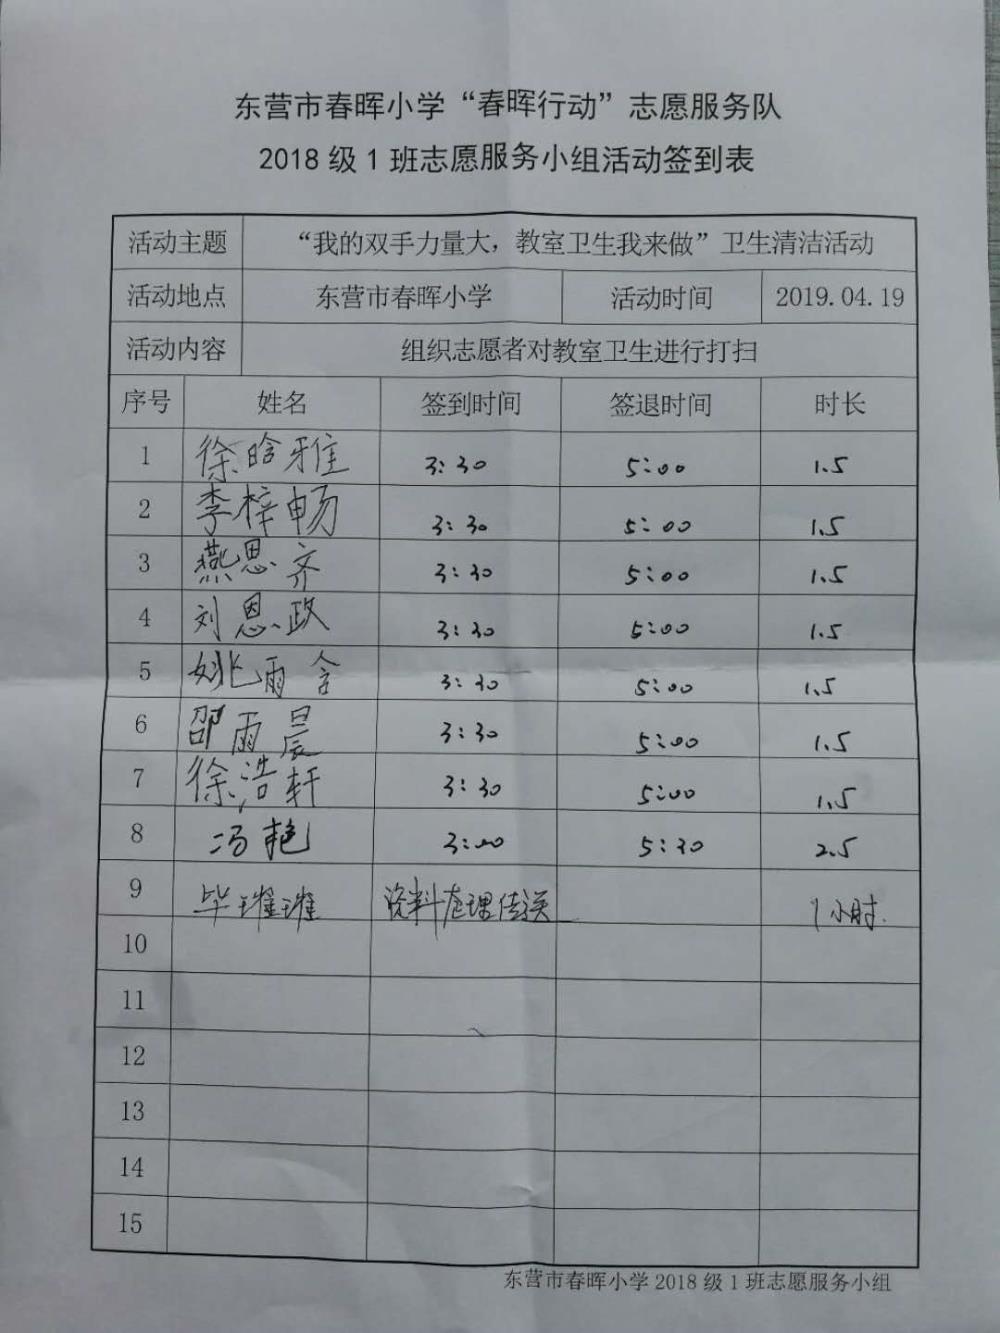 东营市春晖小学“春晖行动”志愿服务队
2018 级 1 班志愿服务小组活动签到表
活动主题 “我的双手力量大，教室卫生我来做”卫生清洁活动
活动地点 东营市春晖小学 活动时间 2019.04.19
活动内容 组织志愿者对教室卫生进行打扫
序号 姓名 签到时间 签退时间 时长
1 徐晗雅 3:30 5:00 1.5
2 李梓畅 3:30 5:00 1.5
3 燕思齐 3:30 5:00 1.5
4 刘恩政 3:30 5:00 1.5
5 姚雨含 3:30 5:00 1.5
6 邵雨晨 3:30 5:00 1.5
7 徐浩轩 3:30 5:00 1.5
8 冯艳 3:00 5:30 2.5
9 毕璀璀 资料整理传送 1小时.
10
11
12
13
14
15
东营市春晖小学 2018 级 1 班志愿服务小组